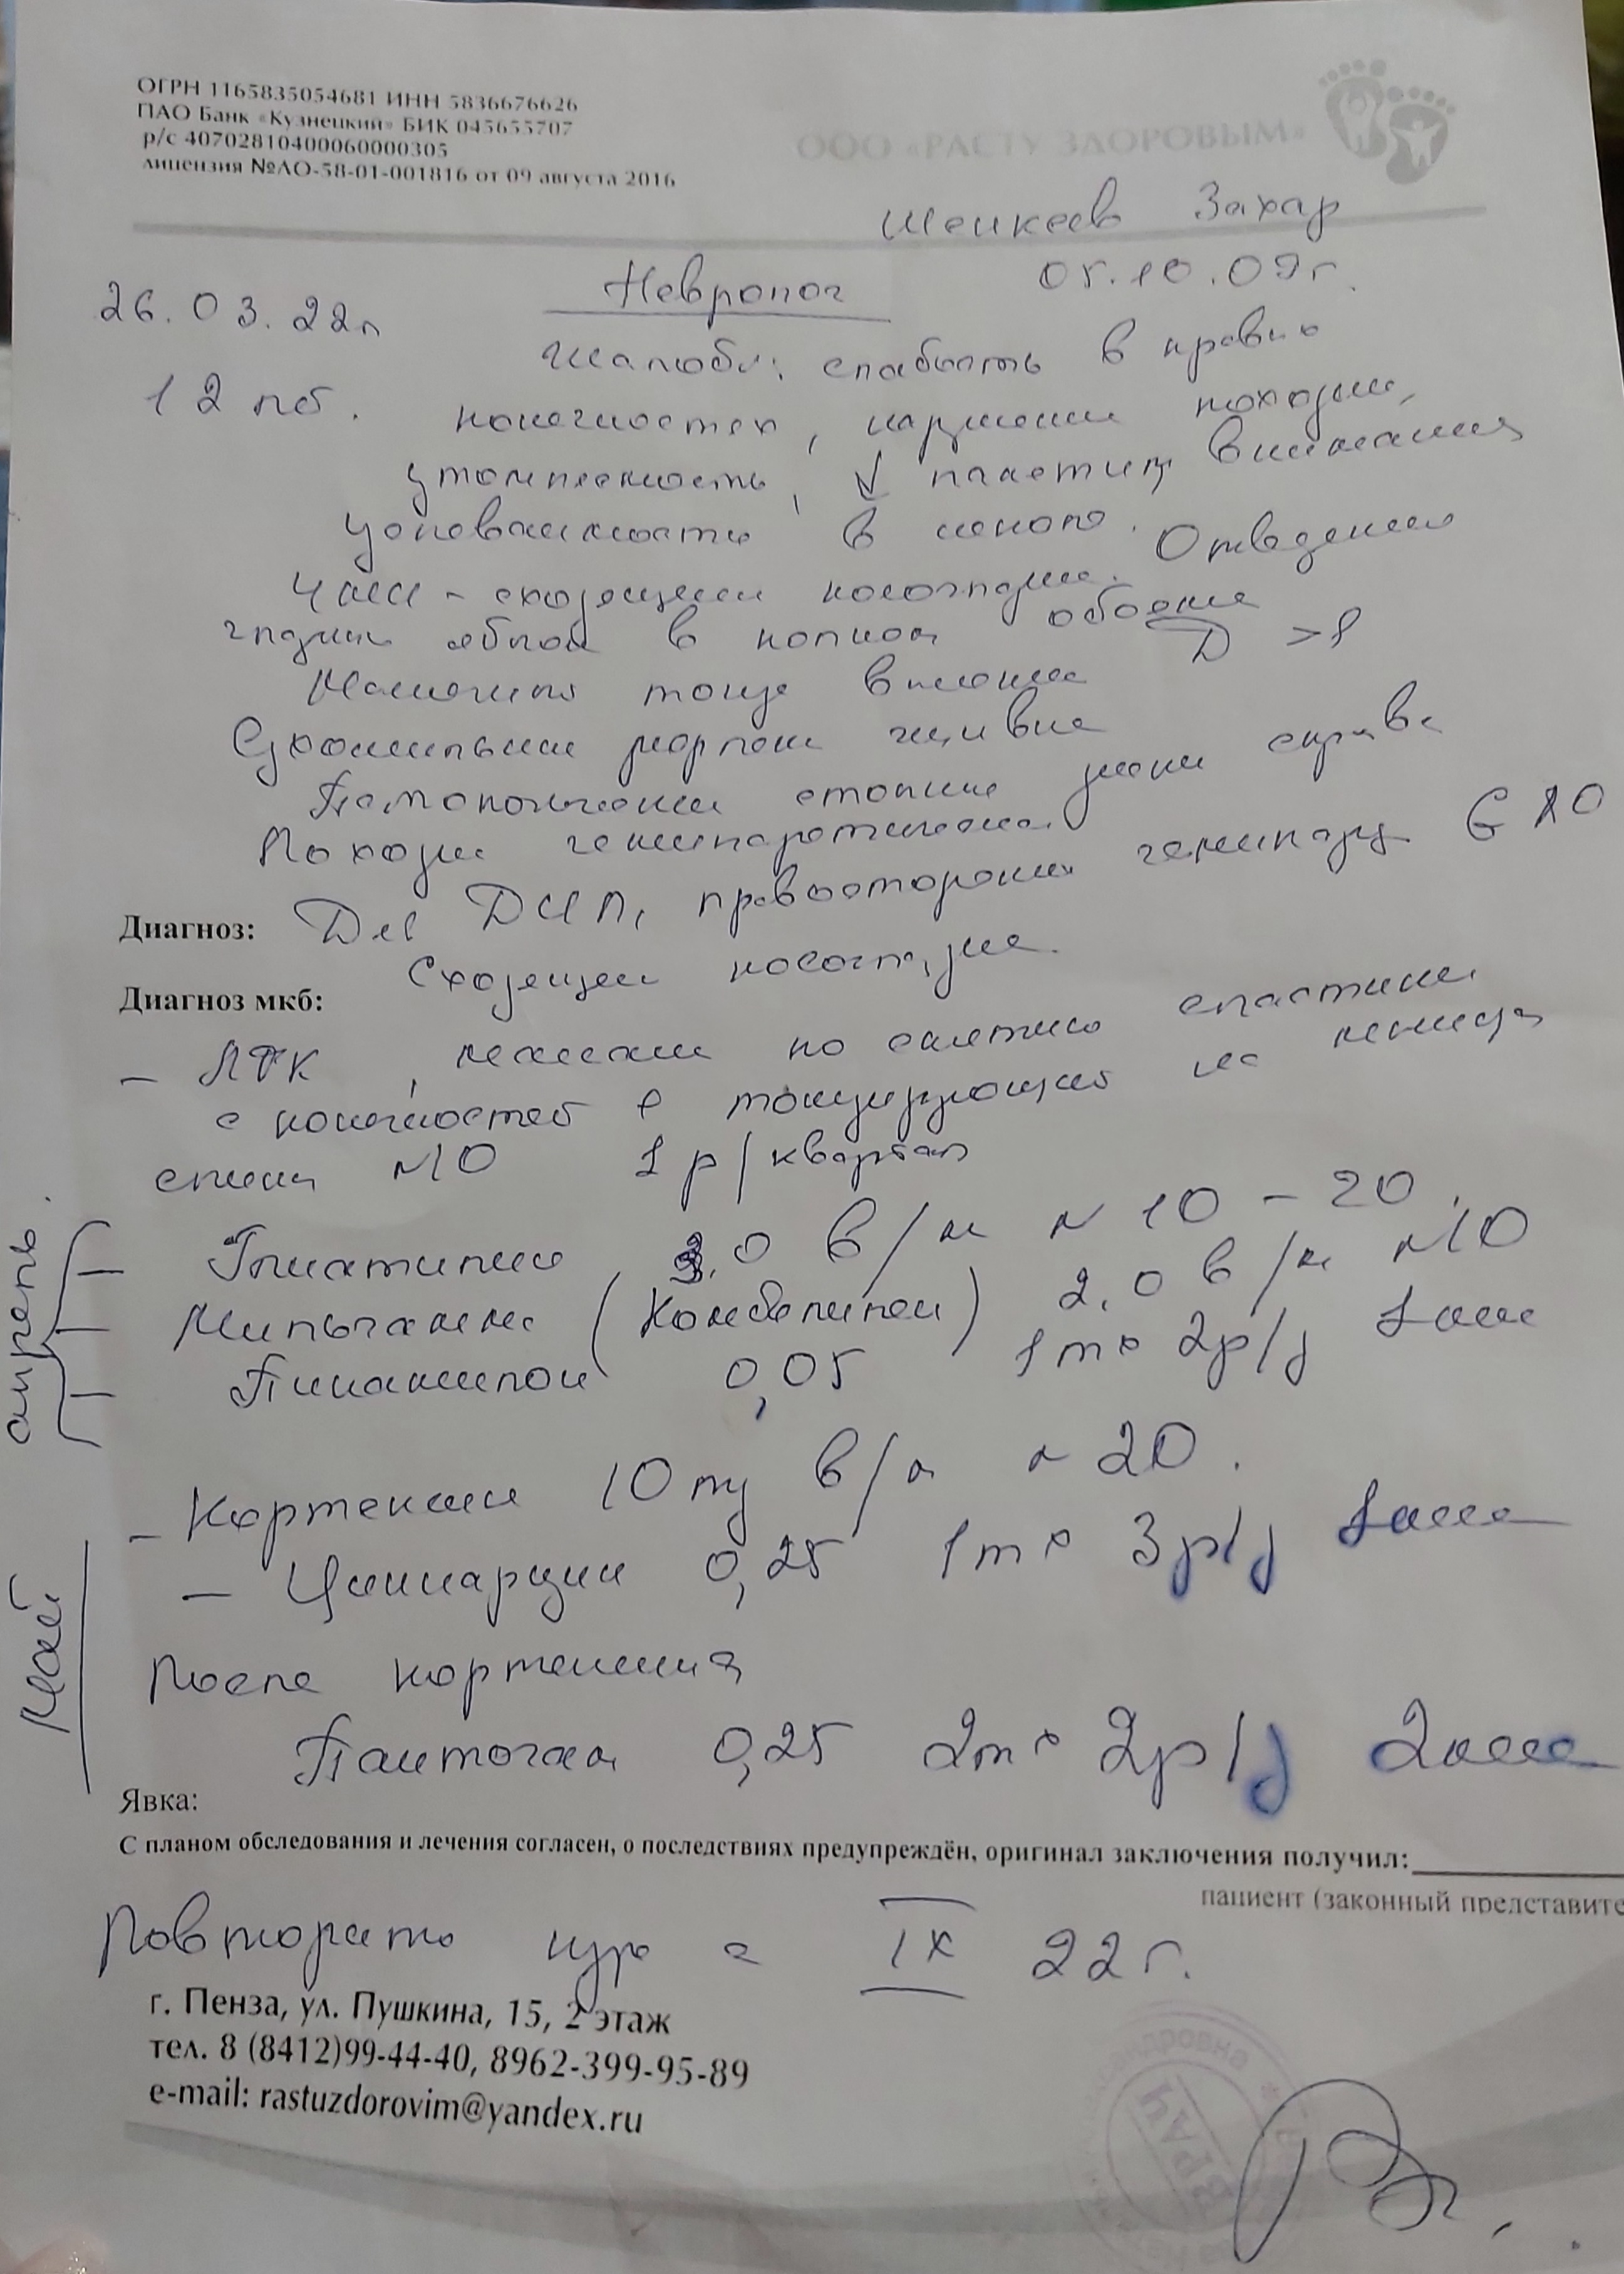 ОГРН 1165835054681 ИНН 5836676626
ПАО Банк «Кузнецкий» БИК 045655707
р/с 40702810400060000305
лицензия №ЛО-58-01-001816 от 09 августа 2016
ООО «РАСТУ ЗДОРОВЫМ»
Захар
26.03.22г Невролог 05.10.09г.
12 лет. Жалобы: слабость в правых
конечностях, нарушение походки,
утомляемость, ↓ памяти, внимания
успеваемости в школе.
ЧМН - сходящееся косоглазие. Отведение
глазных яблок в полном объеме D > S
Мышечный тонус высокий
Сухожильные рефлексы живые
Патологические стопные знаки справа
Походка гемипаретическая.
Диагноз: Ds: ДЦП, правосторонний гемипарез G 80
Сходящееся косоглазие.
Диагноз мкб:
- ЛФК, массаж по снятию спастики
с конечностей с тонизирующим на мышцы
спины N10 1 р/квартал
апрель.
- Глиатилин 3,0 в/м N 10 - 20.
- Мильгамма (Комбилипен) 2,0 в/м N10
- Пикамилон 0,05 1т х 2р/д 1 мес
май
- Кортексин 10 мг в/м N 20.
- Циннаризин 0,25 1т х 3р/д 1 мес
После кортексина
Пантогам 0,25 2т х 2р/д 2 мес
Явка:
С планом обследования и лечения согласен, о последствиях предупреждён, оригинал заключения получил:
пациент (законный представите
Повторить курс в IX 22г.
г. Пенза, ул. Пушкина, 15, 2 этаж
тел. 8 (8412)99-44-40, 8962-399-95-89
e-mail: rastuzdorovim@yandex.ru
ВРАЧ